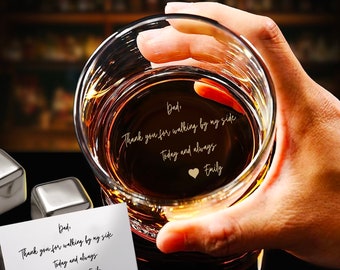 Dad,
Thank you for walking by my side
Today and always
Emily
Dad,
Thank you for walking by my side
Today and always
Emily